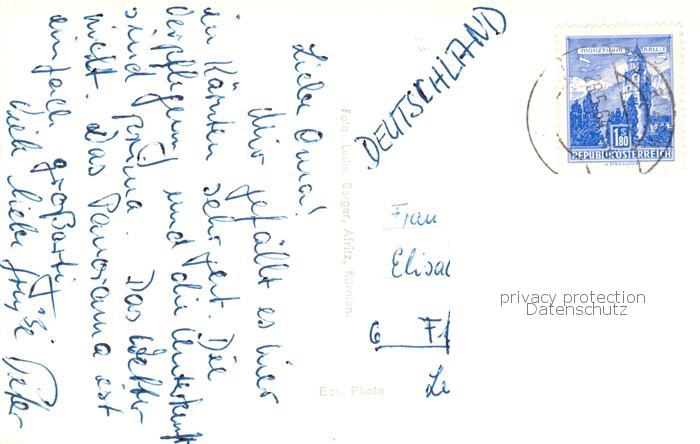 Liebe Oma!
Mir gefällt es hier
in Kärnten sehr gut. Die
Verpflegung und die Unterkunft
sind prima. Das Wetter
nicht. Das Panorama ist
einfach großartig.
Viele liebe Grüße Peter
Foto: Ludw. Gerger, Afritz, Kärnten.
Ech. Photo
DEUTSCHLAND
MÜNZTURM HALL I. T.
1 S 80
REPUBLIK ÖSTERREICH
Frau
Elisa
6 F
Le
privacy protection
Datenschutz